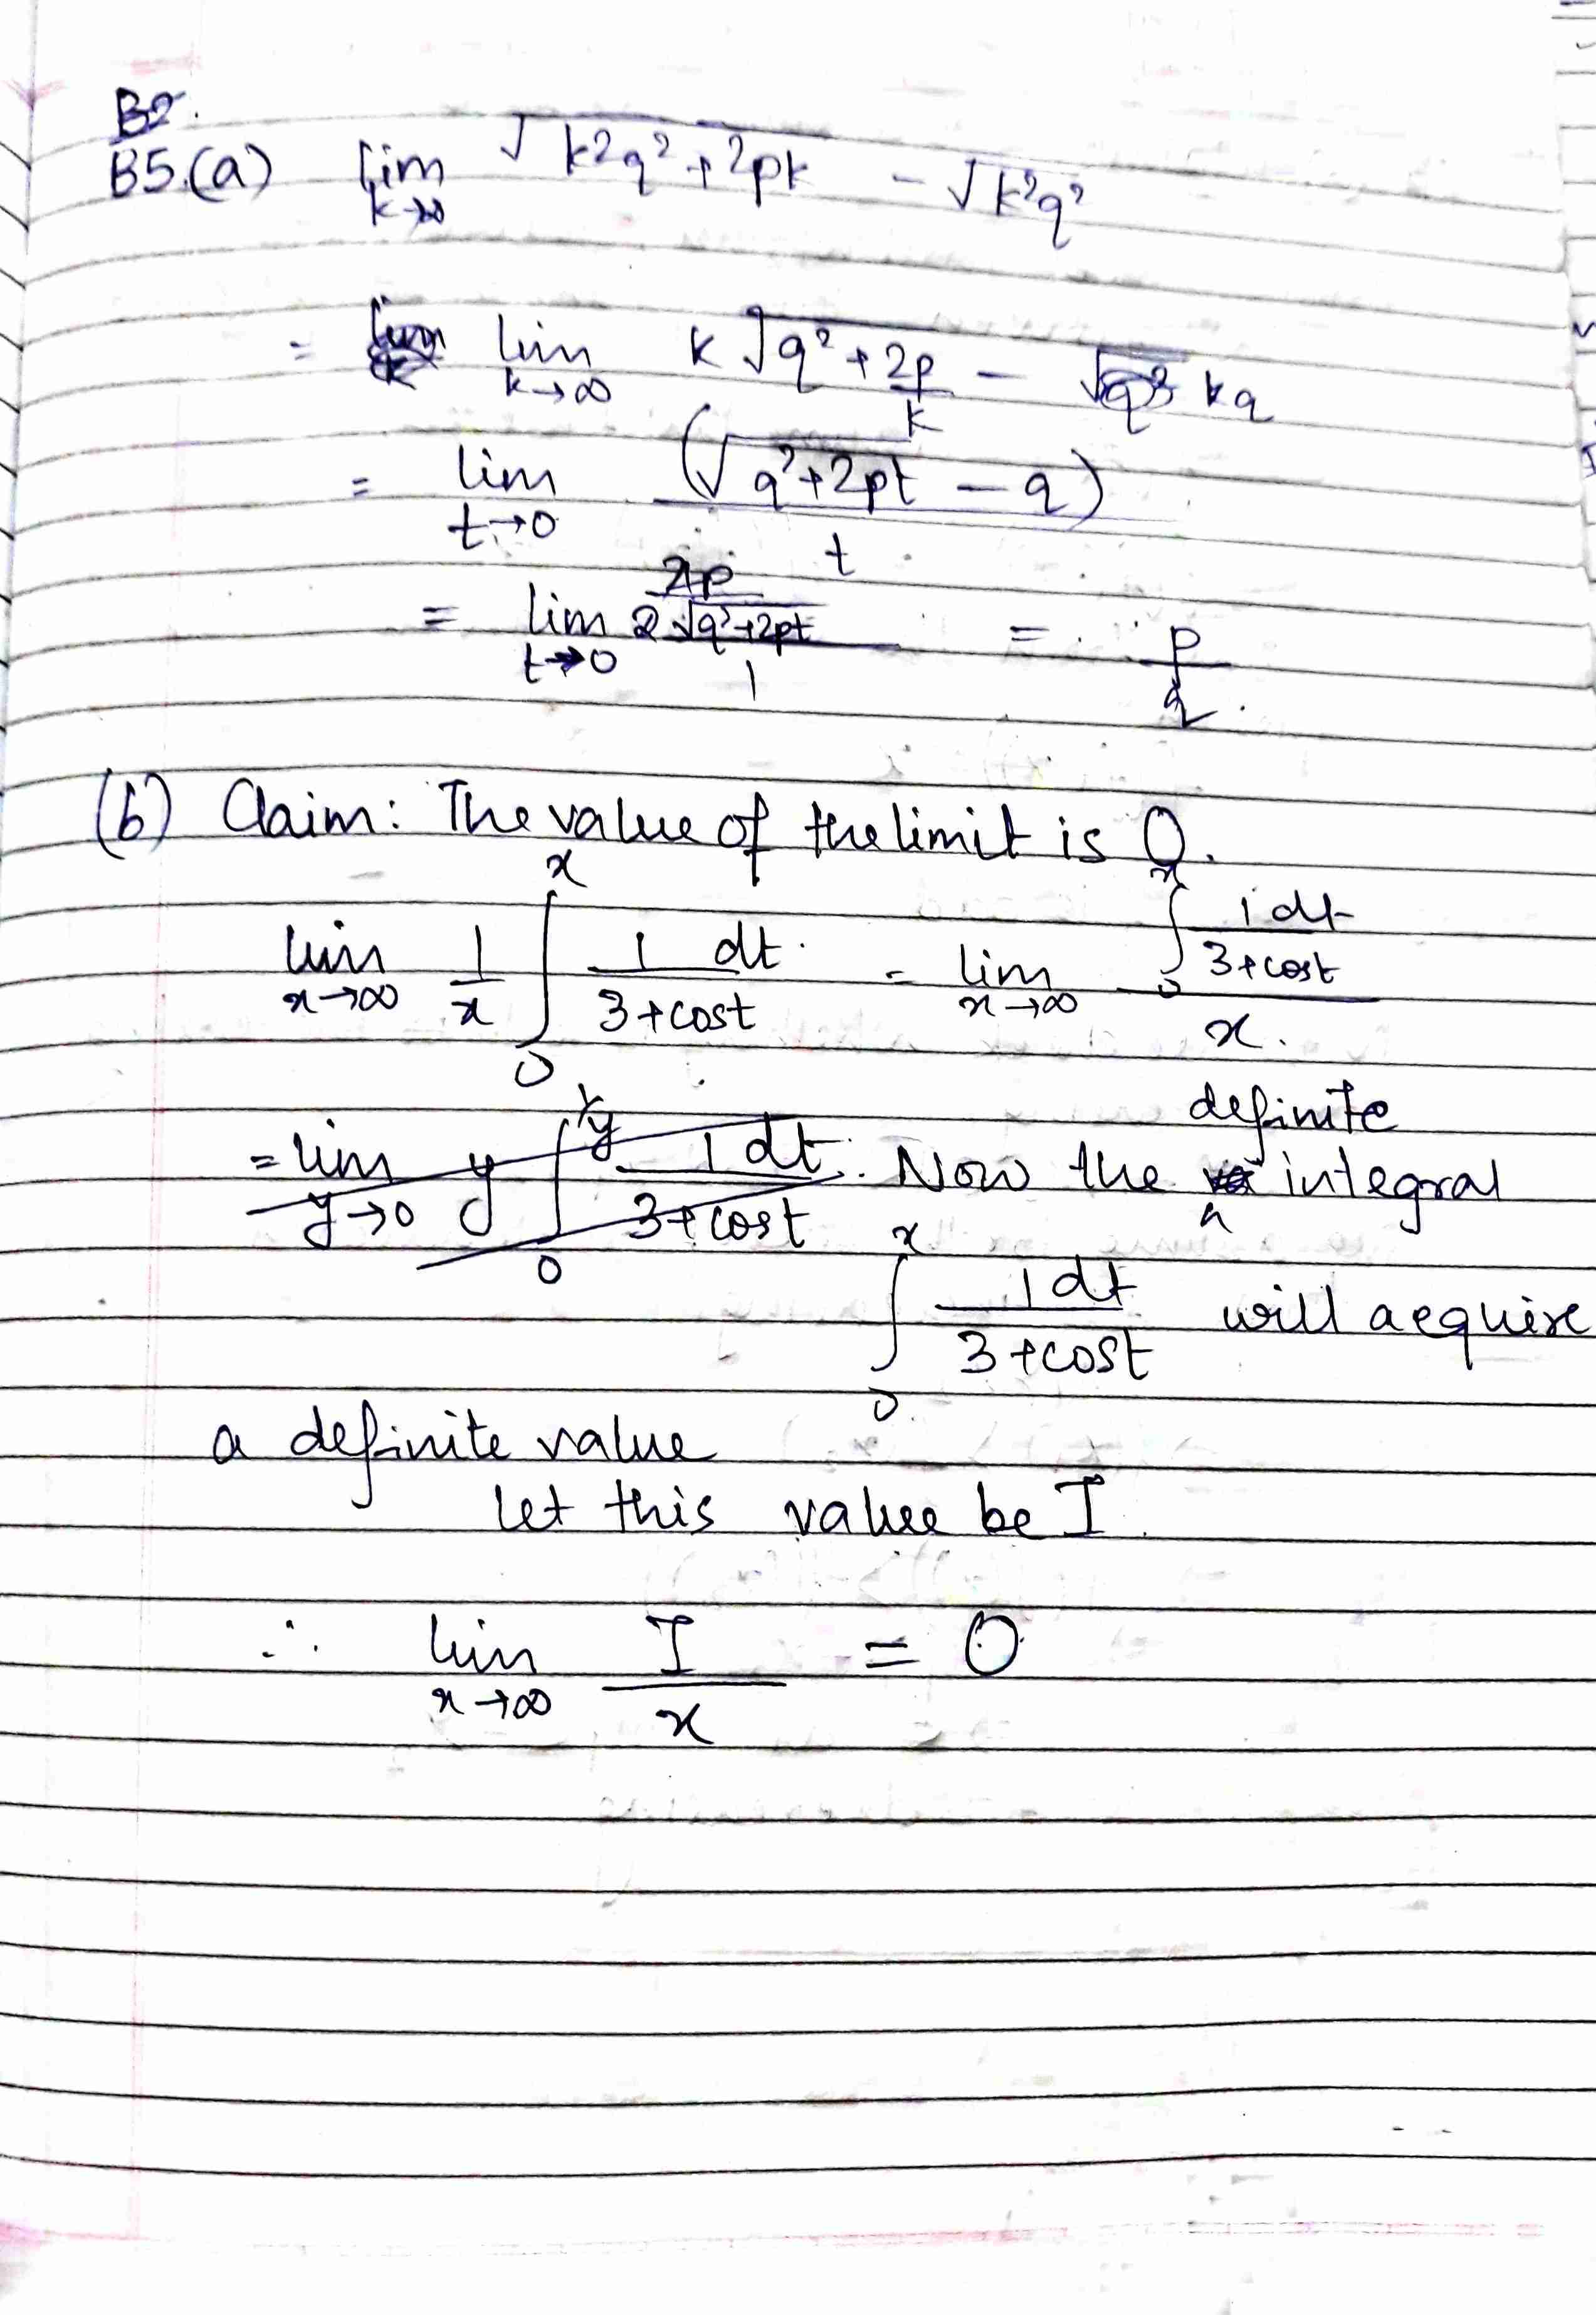 B2.
B5.(a) lim k→∞ √k²q²+2pk - √k²q²
= lim k→∞ k √q²+2p/k - kq
= lim t→0 (√q²+2pt - q)/t
= lim t→0 (2p/2√q²+2pt)/1 = p/q.
(b) Claim: The value of the limit is 0.
lim x→∞ 1/x ∫₀ˣ 1 dt/3+cost = lim x→∞ ∫₀ˣ 1 dt/3+cost / x.
= lim y→0 y ∫₀^1/y 1 dt/3+cost. Now the definite integral
∫₀ˣ 1 dt/3+cost will acquire
a definite value
let this value be I.
∴ lim x→∞ I/x = 0